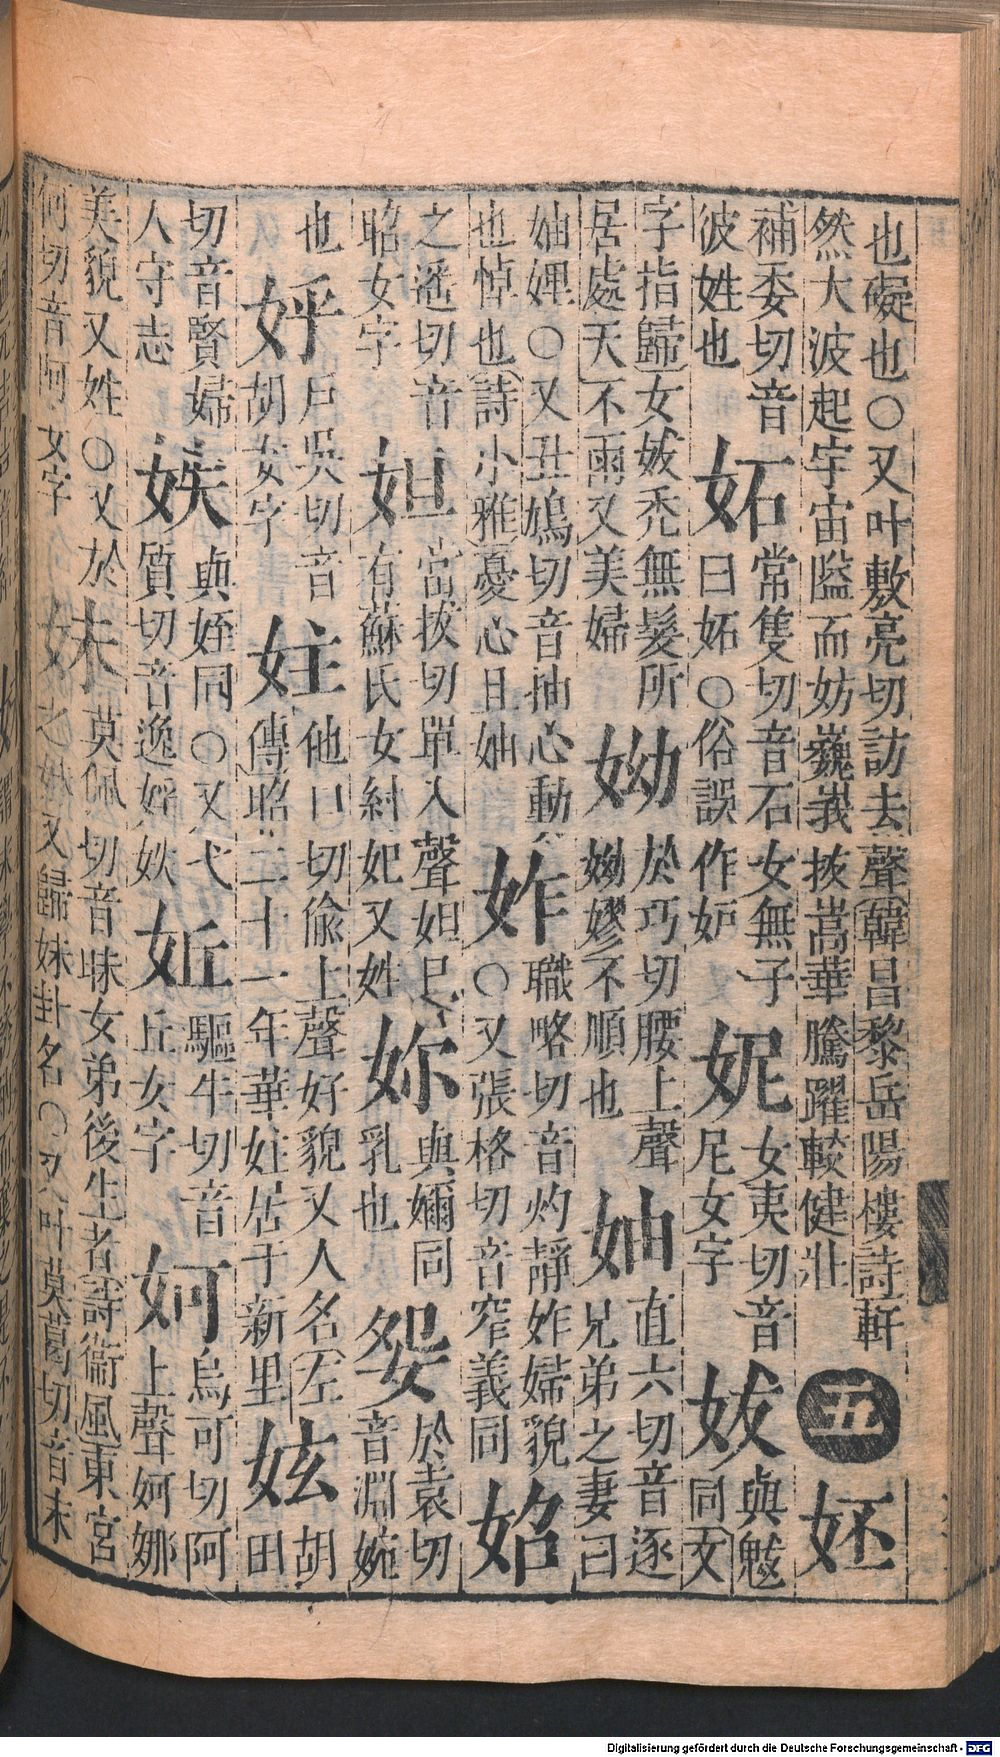 也礙也○又叶敷亮切訪去聲韓昌黎岳陽樓詩軒
然大波起宇宙隘而妨巍峩拔嵩華騰踔較健壯
五
㚰
補委切音
彼姓也
妬
常隻切音石女無子
曰妬○俗誤作妒
妮
女夷切音
尼女字
妭
與魃
同文
字指歸女妭禿無髮所
居處天不雨又美婦
㛂
於巧切腰上聲
㛂嫪不順也
妯
直六切音逐
兄弟之妻曰
妯娌○又丑鳩切音抽心動
也悼也詩小雅憂心且妯
妰
職略切音灼靜妰婦貌
○又張格切音窄義同
妱
之遙切音
昭女字
妲
當拔切單入聲妲己
有蘇氏女紂妃又姓
妳
與嬭同
乳也
妴
於袁切
音淵婉
也
㚰
戶吳切音
胡女字
妵
他口切偷上聲好貌又人名左
傳昭二十一年華妵居于新里
妶
胡田
切音賢婦
人守志
㛄
與姪同○又弋
質切音逸
㚱
驅牛切音
丘女字
妸
烏可切阿
上聲妸娜
美貌又姓○又於
何切音阿女字
妹
莫佩切音昧女弟後生者詩衞風東宮
之妹又歸妹卦名○又叶莫葛切音末
Digitalisierung gefördert durch die Deutsche Forschungsgemeinschaft - DFG